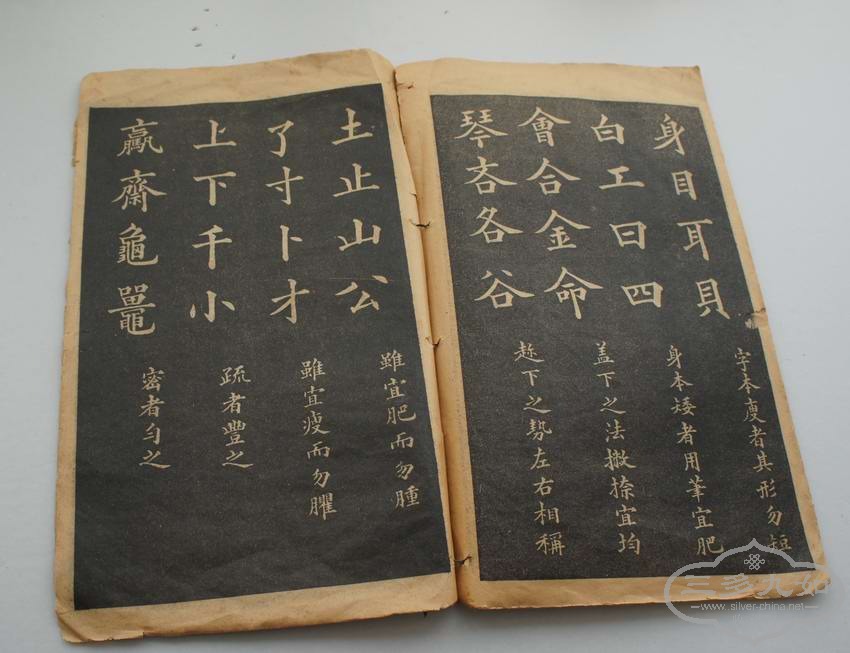 身目耳貝
字本瘦者其形勿短
白工曰四
身本矮者用筆宜肥
會合金命
盖下之法撇捺宜均
琴吝各谷
趂下之勢左右相稱
土止山公
雖宜肥而勿腫
了寸卜才
雖宜瘦而勿臞
上下千小
疏者豐之
齋龜鼉
密者勻之
三多九如
www.silver-china.net